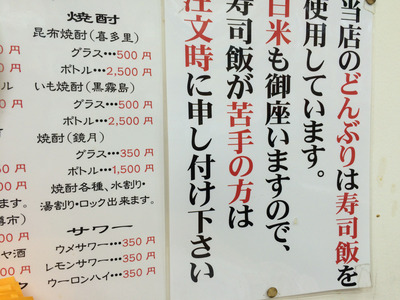 焼酎
昆布焼酎(喜多里)
グラス•••500円
ボトル•••2,500円
いも焼酎(黒霧島)
グラス•••500円
ボトル•••2,500円
焼酎(鏡月)
グラス•••350円
ボトル•••1,500円
焼酎各種、水割り・
湯割り・ロック出来ます。
サワー
ウメサワー•••350円
レモンサワー•••350円
ウーロンハイ•••350円
当店のどんぶりは寿司飯を
使用しています。
白米も御座いますので、
寿司飯が苦手の方は
注文時に申し付け下さい